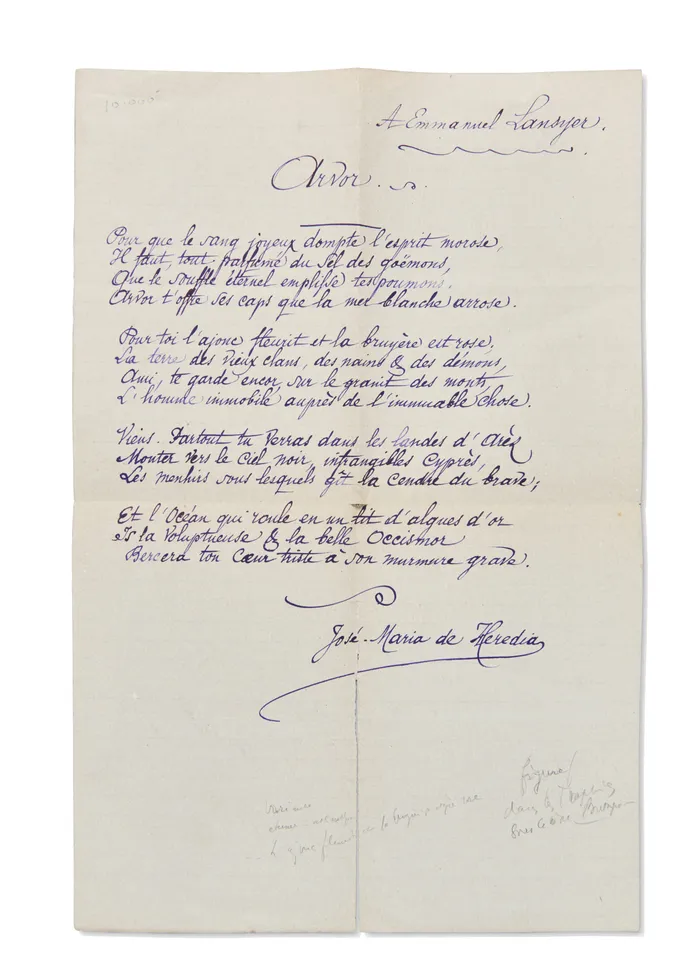 10.000
A Emmanuel Lansyer.
Arvor.
Pour que le sang joyeux dompte l'esprit morose,
Il faut, tout parfumé du sel des goëmons,
Que le souffle éternel emplisse tes poumons.
Arvor t'offre ses caps que la mer blanche arrose.
Pour toi l'ajonc fleurit et la bruyère est rose.
La terre des vieux clans, des nains & des démons,
Ami, te garde encor, sur le granit des monts,
L'homme immobile auprès de l'immuable chose.
Viens. Partout tu verras dans les landes d'Arèz
Monter vers le ciel noir, infrangibles cyprès,
Les menhirs sous lesquels gît la cendre du brave;
Et l'Océan qui roule en un lit d'algues d'or
Is la voluptueuse & la belle Occismor
Bercera ton cœur triste à son murmure grave.
José-Maria de Heredia
figure
dans les Trophées
sous le titre Bretagne